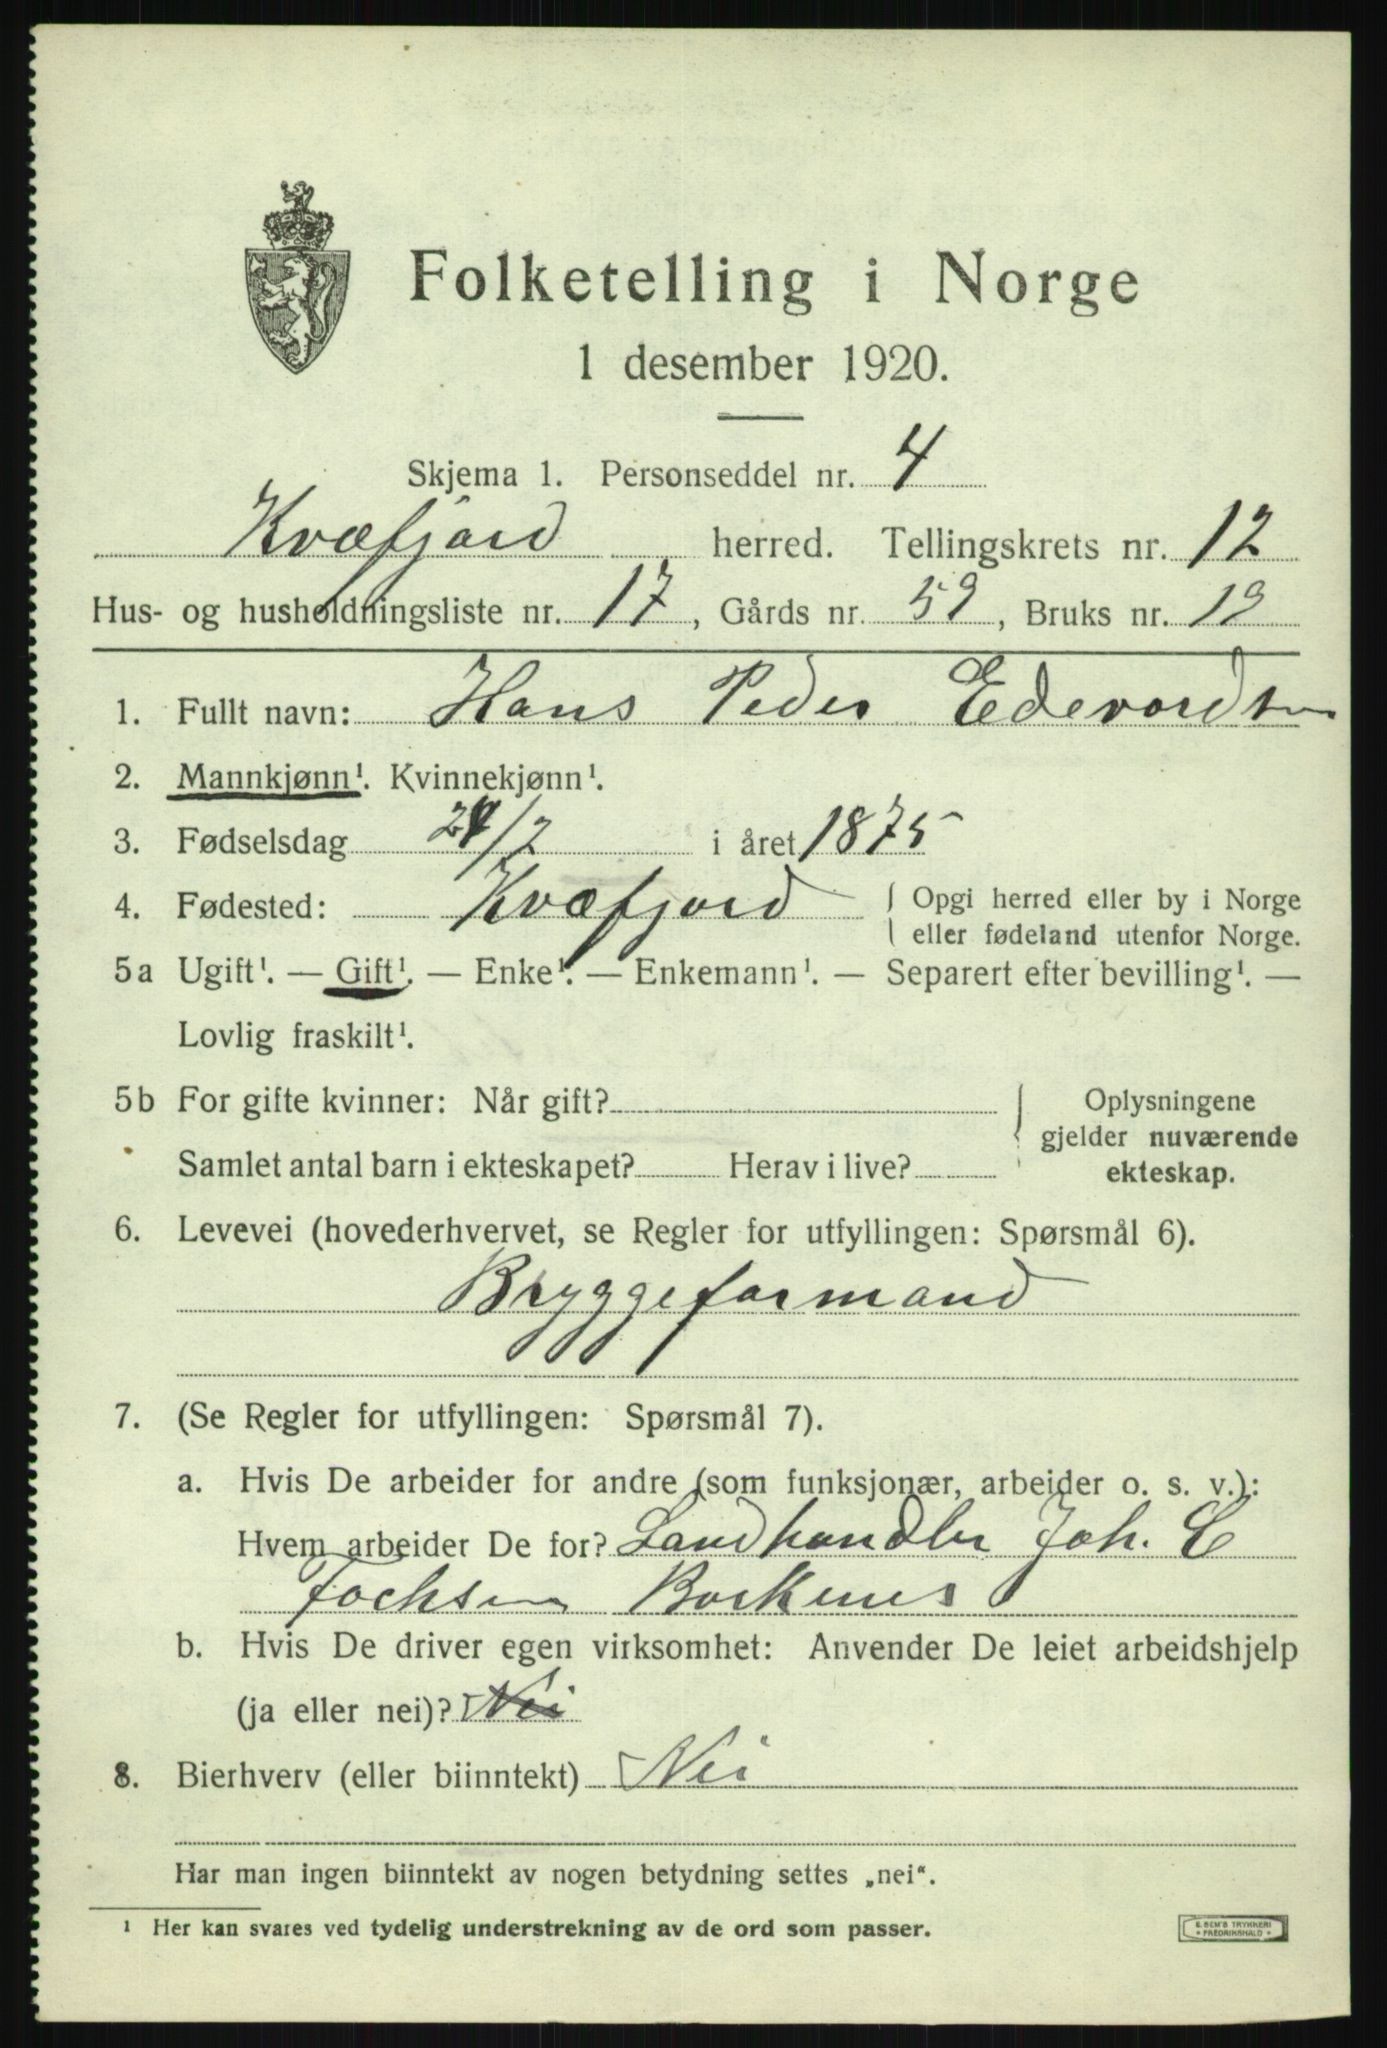 Folketelling i Norge
1 desember 1920.
Skjema 1. Personseddel nr. 4
Kvæfjord herred. Tellingskrets nr. 12
Hus- og husholdningsliste nr. 17, Gårds nr. 59, Bruks nr. 19
1. Fullt navn: Hans Peder Edevardsen
2. Mannkjønn¹. Kvinnekjønn¹.
3. Fødselsdag 24/2 i året 1875
4. Fødested: Kvæfjord { Opgi herred eller by i Norge
eller fødeland utenfor Norge.
5a Ugift¹. — Gift¹. — Enke¹. — Enkemann¹. — Separert efter bevilling¹. —
Lovlig fraskilt¹.
5b For gifte kvinner: Når gift? { Oplysningene
gjelder nuværende
Samlet antal barn i ekteskapet? Herav i live? ekteskap.
6. Levevei (hovederhvervet, se Regler for utfyllingen: Spørsmål 6).
Bryggeformand
7. (Se Regler for utfyllingen: Spørsmål 7).
a. Hvis De arbeider for andre (som funksjonær, arbeider o. s. v.):
Hvem arbeider De for? Landhandler Joh. E
Fochsen Borkenes
b. Hvis De driver egen virksomhet: Anvender De leiet arbeidshjelp
(ja eller nei)? Nei
8. Bierhverv (eller biinntekt) Nei
Har man ingen biinntekt av nogen betydning settes „nei“.
¹ Her kan svares ved tydelig understrekning av de ord som passer.
E. SEM'S TRYKKERI
* FREDRIKSHALD *